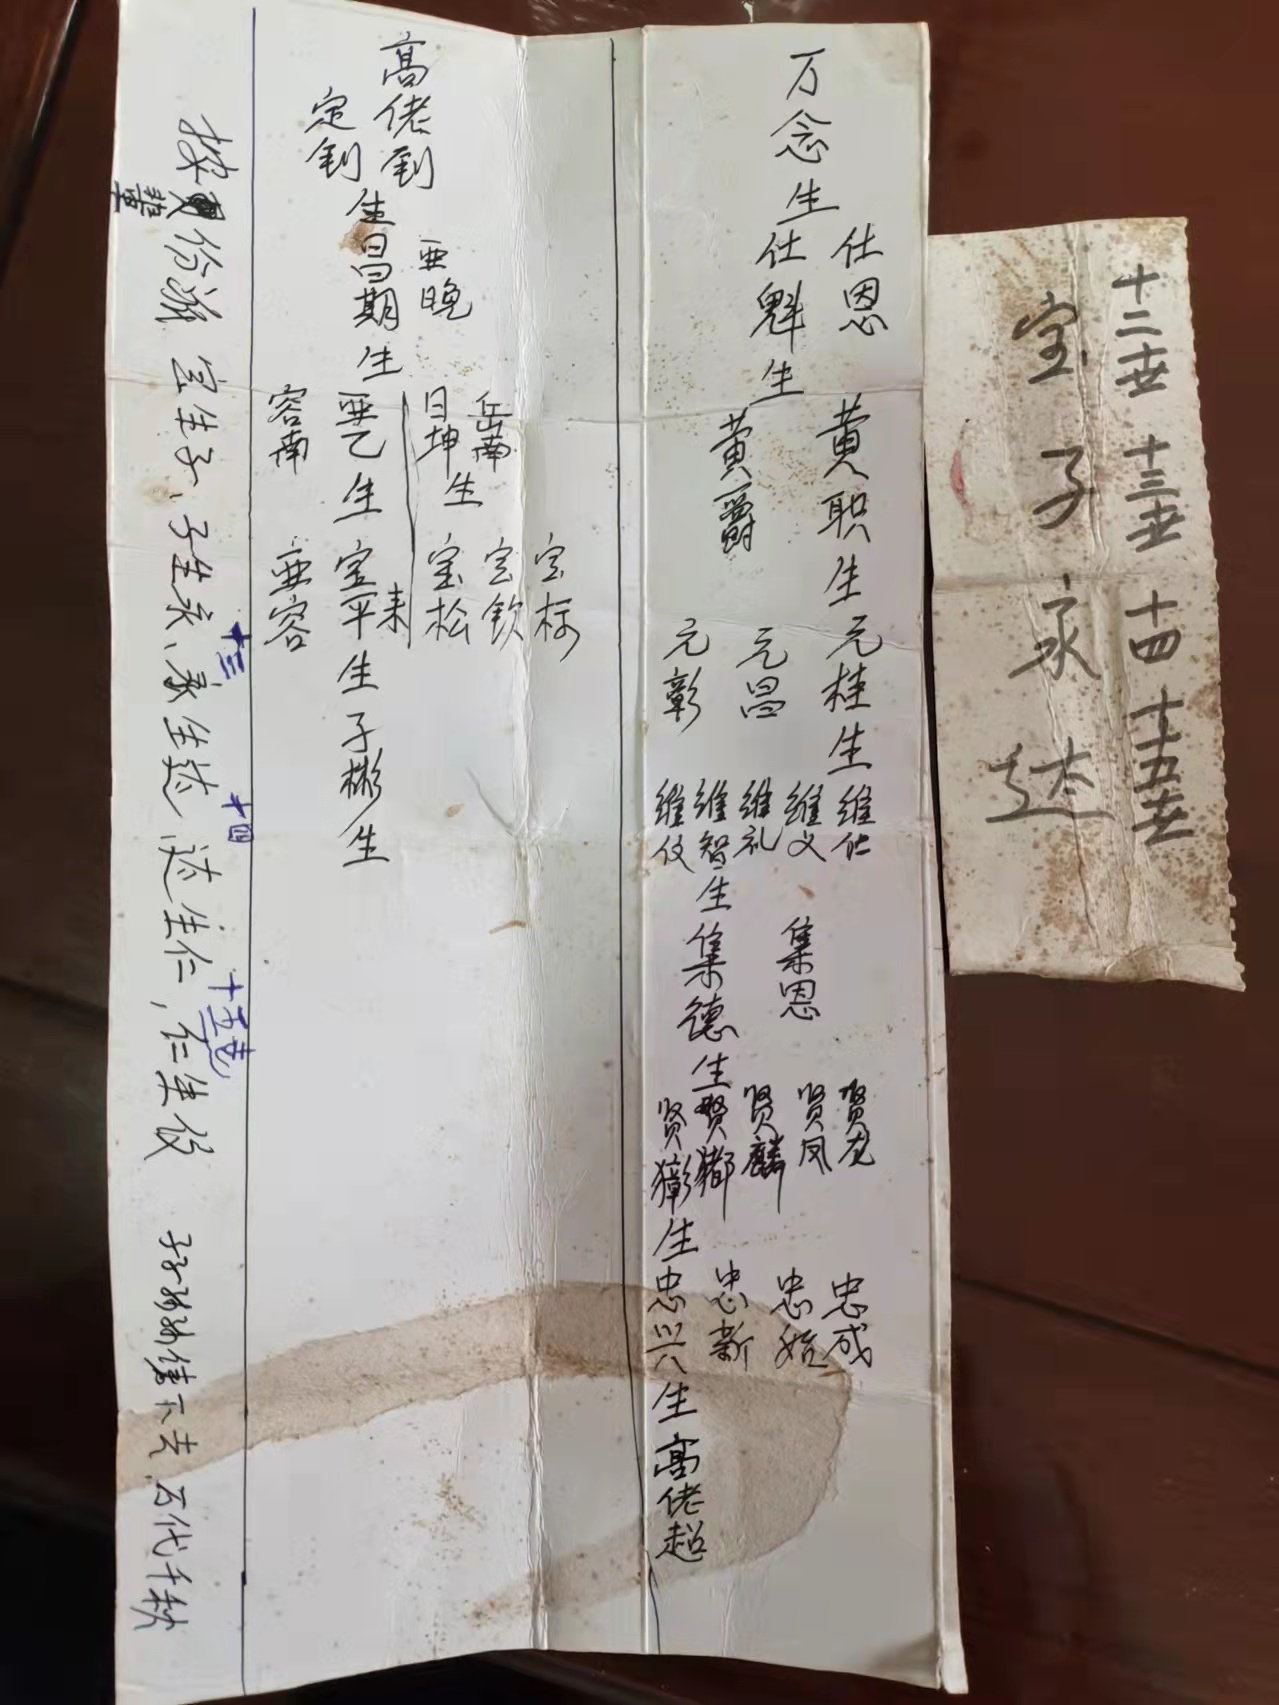 十二世 十三世 十四 十五世
宝 子 永 达
万念生
仕恩
仕魁生
黄职生
黄爵
元桂生
元昌
元彰
维仕
维义
维礼
维智生
维仪
集恩
集德生
贤龙
贤凤
贤麟
贤
贤
生
忠成
忠始
忠新
忠兴生
高佬超
高佬钊
定钊
生
亚晚
昌期生
岳南
日坤
生
亚乙生
容南
宝标
宝钦
宝松
宝平
来
亚容
生子彬生
按
辈
份派 宝生子、子生永、永生达、达生仁,仁生
十三
十四
十五世
子子孙孙传下去,万代千秋